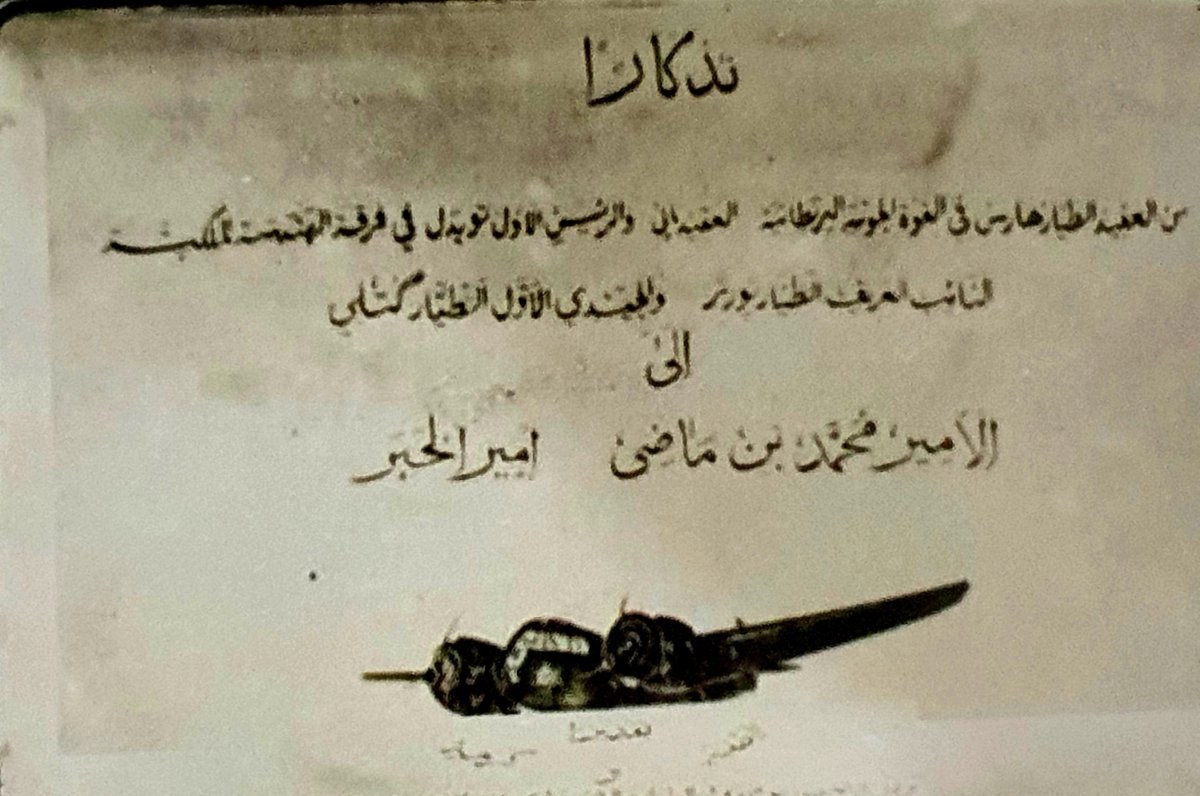 تذكارا
من العقيد الطيار هارس فى القوة الجوية البريطانية العقيد اتى والرئيس الاول تويدل في فرقة الهندسة الملكية
النائب العريف الطيار بورتر والجندي الأول الطيار كتلي
الى
الامير محمد بن ماضى امير الخبر